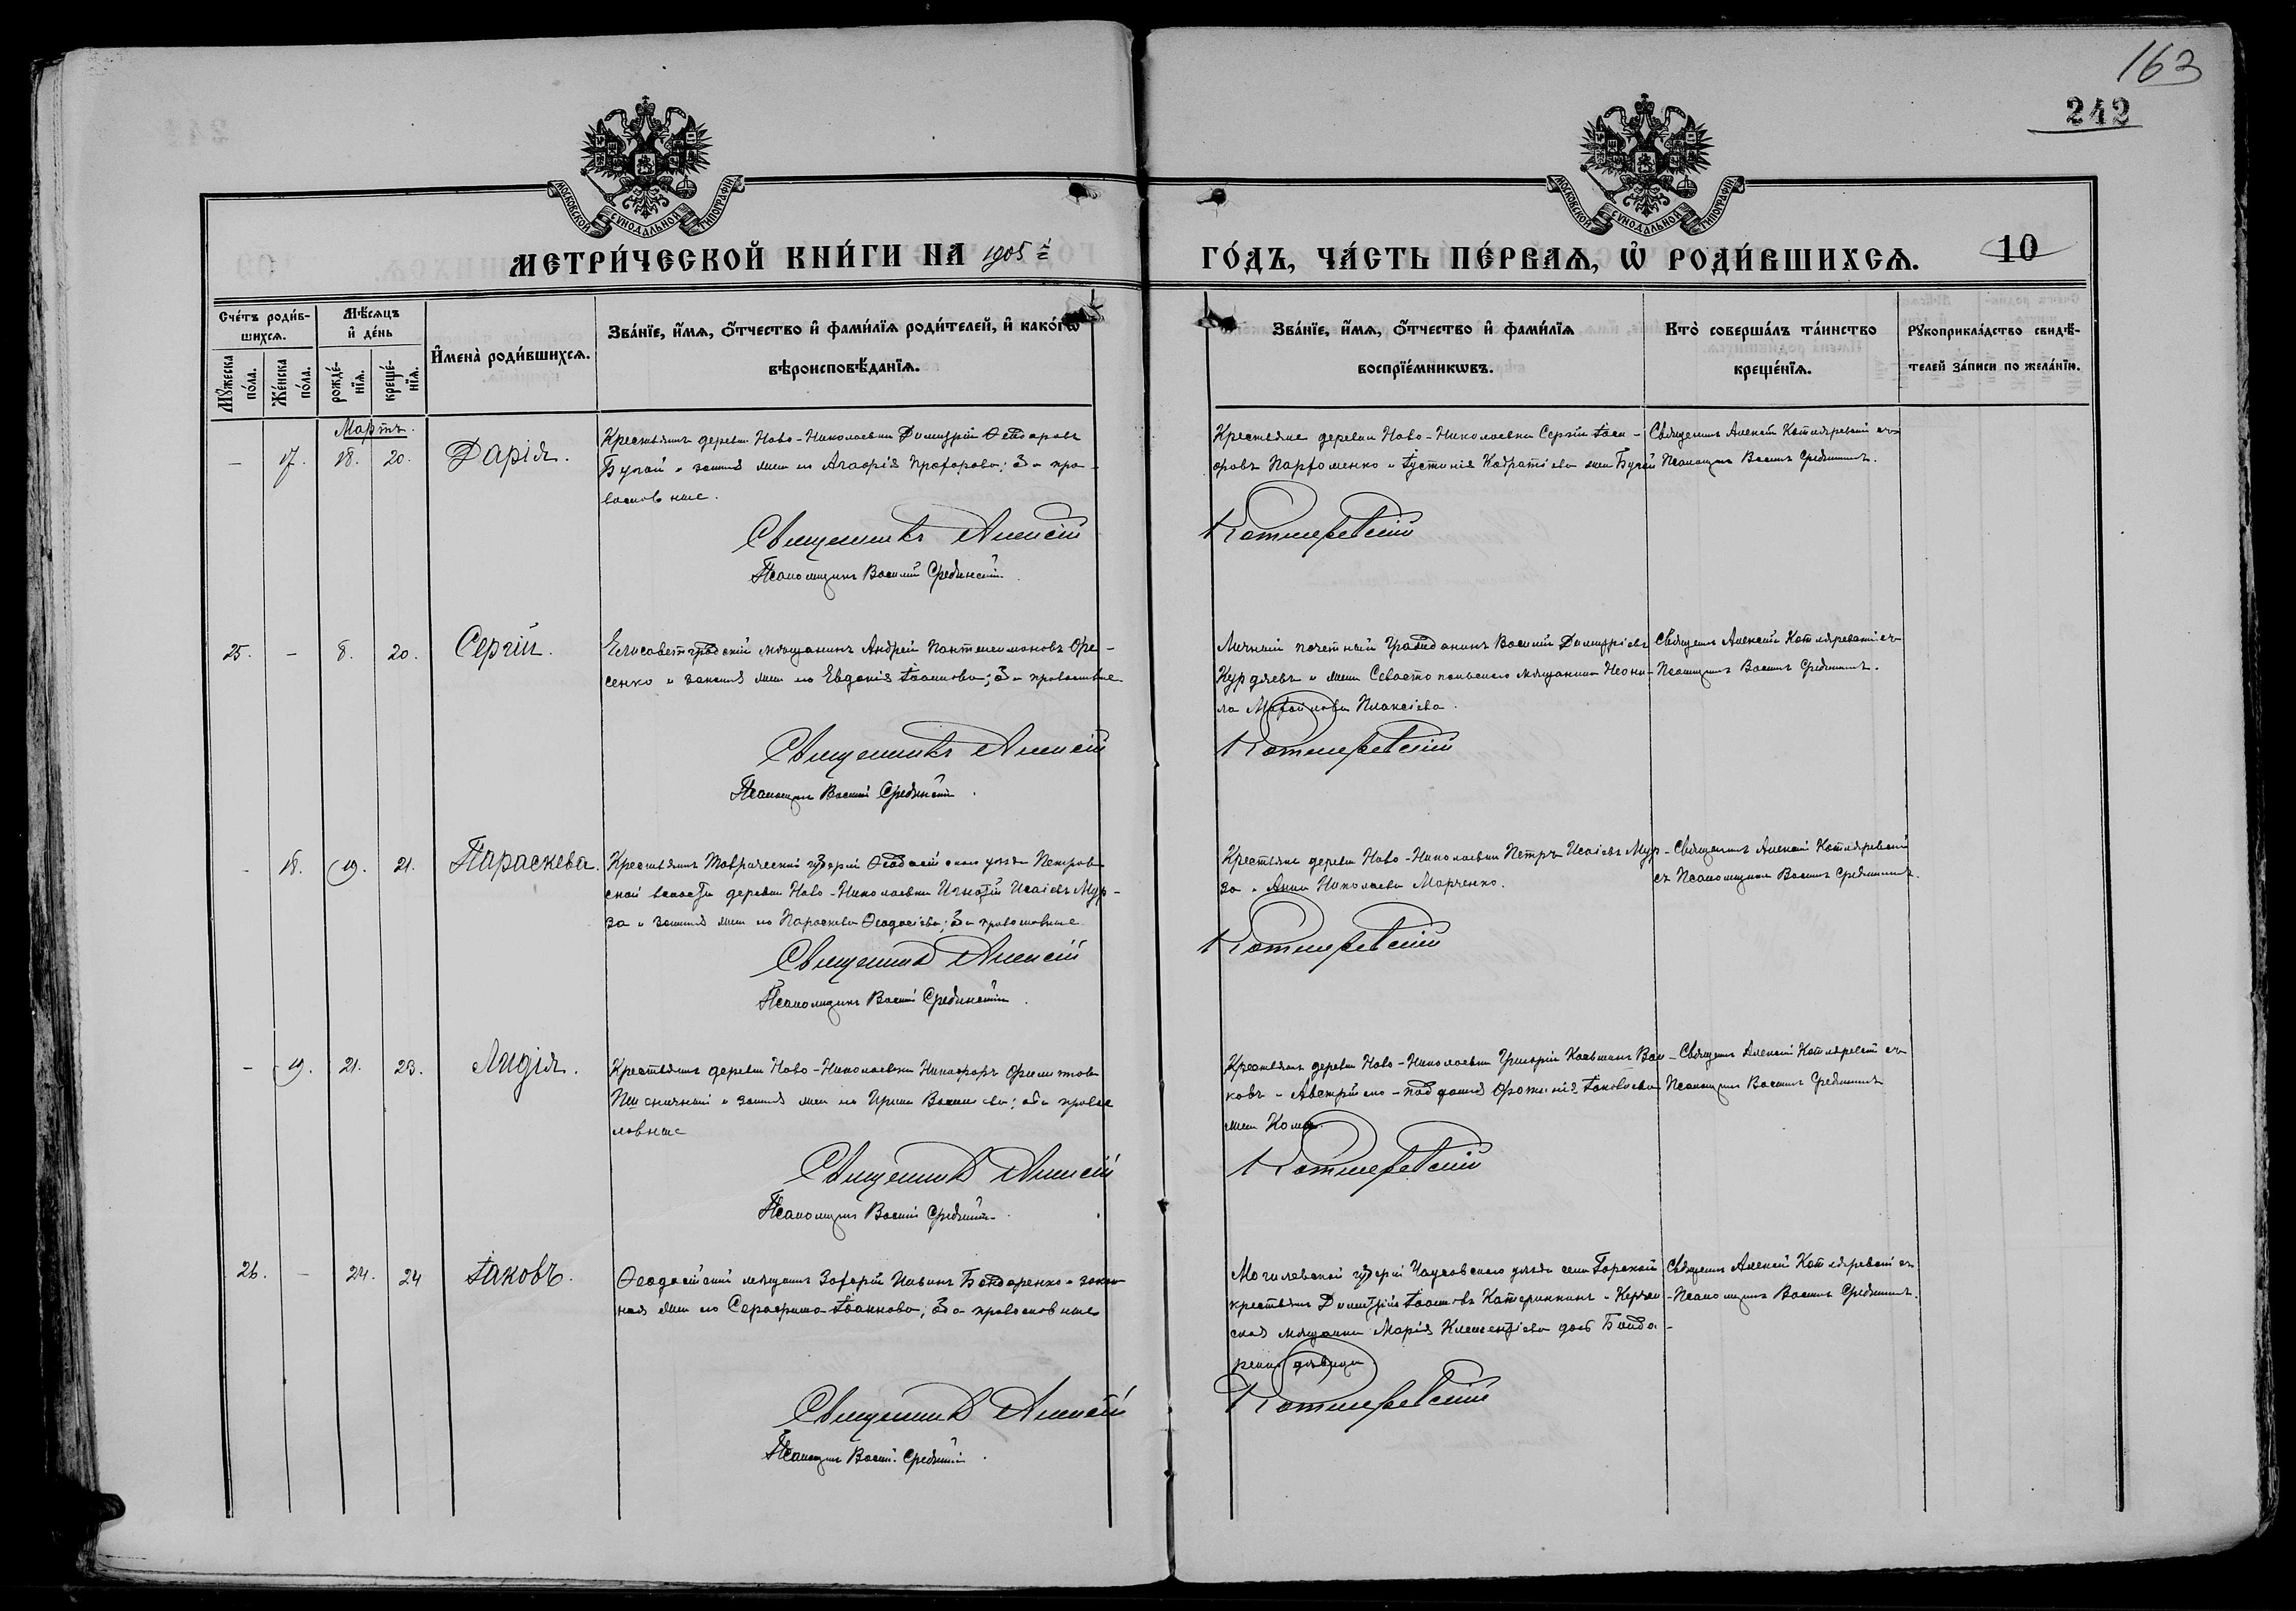 163
242
МОСКОВСКОЙ СѴНОДАЛЬНОЙ ТИПОГРАФІИ
МОСКОВСКОЙ СѴНОДАЛЬНОЙ ТИПОГРАФІИ
МЕТРИ́ЧЕСКОЙ КНИ́ГИ НА 1905 й
ГО́ДЪ, ЧА́СТЬ ПЕ́РВАѦ, Ѡ҆ РОДИ́ВШИХСѦ.
10
Сче́тъ роди́в-
шихсѧ.
Мꙋ́жеска по́ла.
Же́нска по́ла.
Мѣ́сѧцъ
и҆ де́нь
рожде́-нїѧ.
креще́-нїѧ.
И҆мена̀ роди́вшихсѧ.
Зва́нїе, и҆́мѧ, ѻ҆́тчество и҆ фами́лїѧ роди́телей, и҆ како́гѡ
вѣроисповѣ́данїѧ.
Зва́нїе, и҆́мѧ, ѻ҆́тчество и҆ фами́лїѧ
воспрїе́мникѡвъ.
Кто̀ соверша́лъ та́инство
креще́нїѧ.
Рꙋкоприкла́дство свидѣ́-
телей за́писи по жела́нїю.
Мартъ.
– 17. 18. 20. Дарія.
Крестьянинъ деревни Ново-Николаевки Димитрій Ѳеодоровъ
Бугай и законная жена его Агафія Прохорова; оба пра-
вославные.
Священникъ Алексій
Псаломщикъ Василій Срединскій.
Крестьяне деревни Ново-Николаевки Сергій
Парфоменко и Іустинія жена Бугай
Котляревскій
Священникъ Алексій Котляревскій съ
Псаломщик. Васил. Срединскимъ.
25. – 8. 20. Сергій.
Елисаветградскій мѣщанинъ Андрей Пантелеимоновъ Фре-
сенко и законная жена его Евдокія Іоаннова; оба православные
Священникъ Алексій
Псаломщикъ Василій Срединскій.
Личный почетный Гражданинъ Василій Димитріевъ
Курдяевъ и жена Севастопольскаго мѣщанина Неони-
ла Плаксіева.
Котляревскій
Священ. Алексій Котляревскій съ
Псаломщик. Васил. Срединскимъ.
– 18. 19. 21. Параскева.
Крестьянинъ Таврической губерніи Ѳеодосійскаго уѣзда Петров-
ской волости деревни Ново-Николаевки Игнатій Исаіевъ Мур-
за и законная жена его Параскева Ѳеодосіева; оба православные
Священникъ Алексій
Псаломщикъ Василій Срединскій.
Крестьяне деревни Ново-Николаевки Петръ Исаіевъ Мур-
за и Анна Николаева Марченко.
Котляревскій
Священникъ Алексій Котляревскій
съ Псаломщикомъ Васил. Срединскимъ.
– 19. 21. 23. Лидія.
Крестьянинъ деревни Ново-Николаевки Никифоръ Филиппов
Пшеничный и законная жена его Ирина Васильева; оба право-
славные
Священникъ Алексій
Псаломщикъ Василій Срединскій.
Крестьянинъ деревни Ново-Николаевки Григорій
ковъ и Австрійско-подданная Фотинія Іаковлева
жена
Котляревскій
Священ. Алексій Котляревскій съ
Псаломщик. Васил. Срединскимъ
26. – 24. 24 Іаковъ.
Ѳеодосійскій мѣщанинъ Захарій Бондаренко и закон-
ная жена его Серафима Іоаннова; оба православные
Священникъ Алексій
Псаломщикъ Василій Срединскій.
Могилевской губерніи Чаусовскаго уѣзда села Горокой
крестьянинъ Димитрій Іоанновъ Катеринкинъ и Керчен-
ская мѣщанка Марія Климентіева дочь Бонда-
ренко дѣвица
Котляревскій
Священ. Алексій Котляревскій съ
Псаломщик. Васил. Срединскимъ.